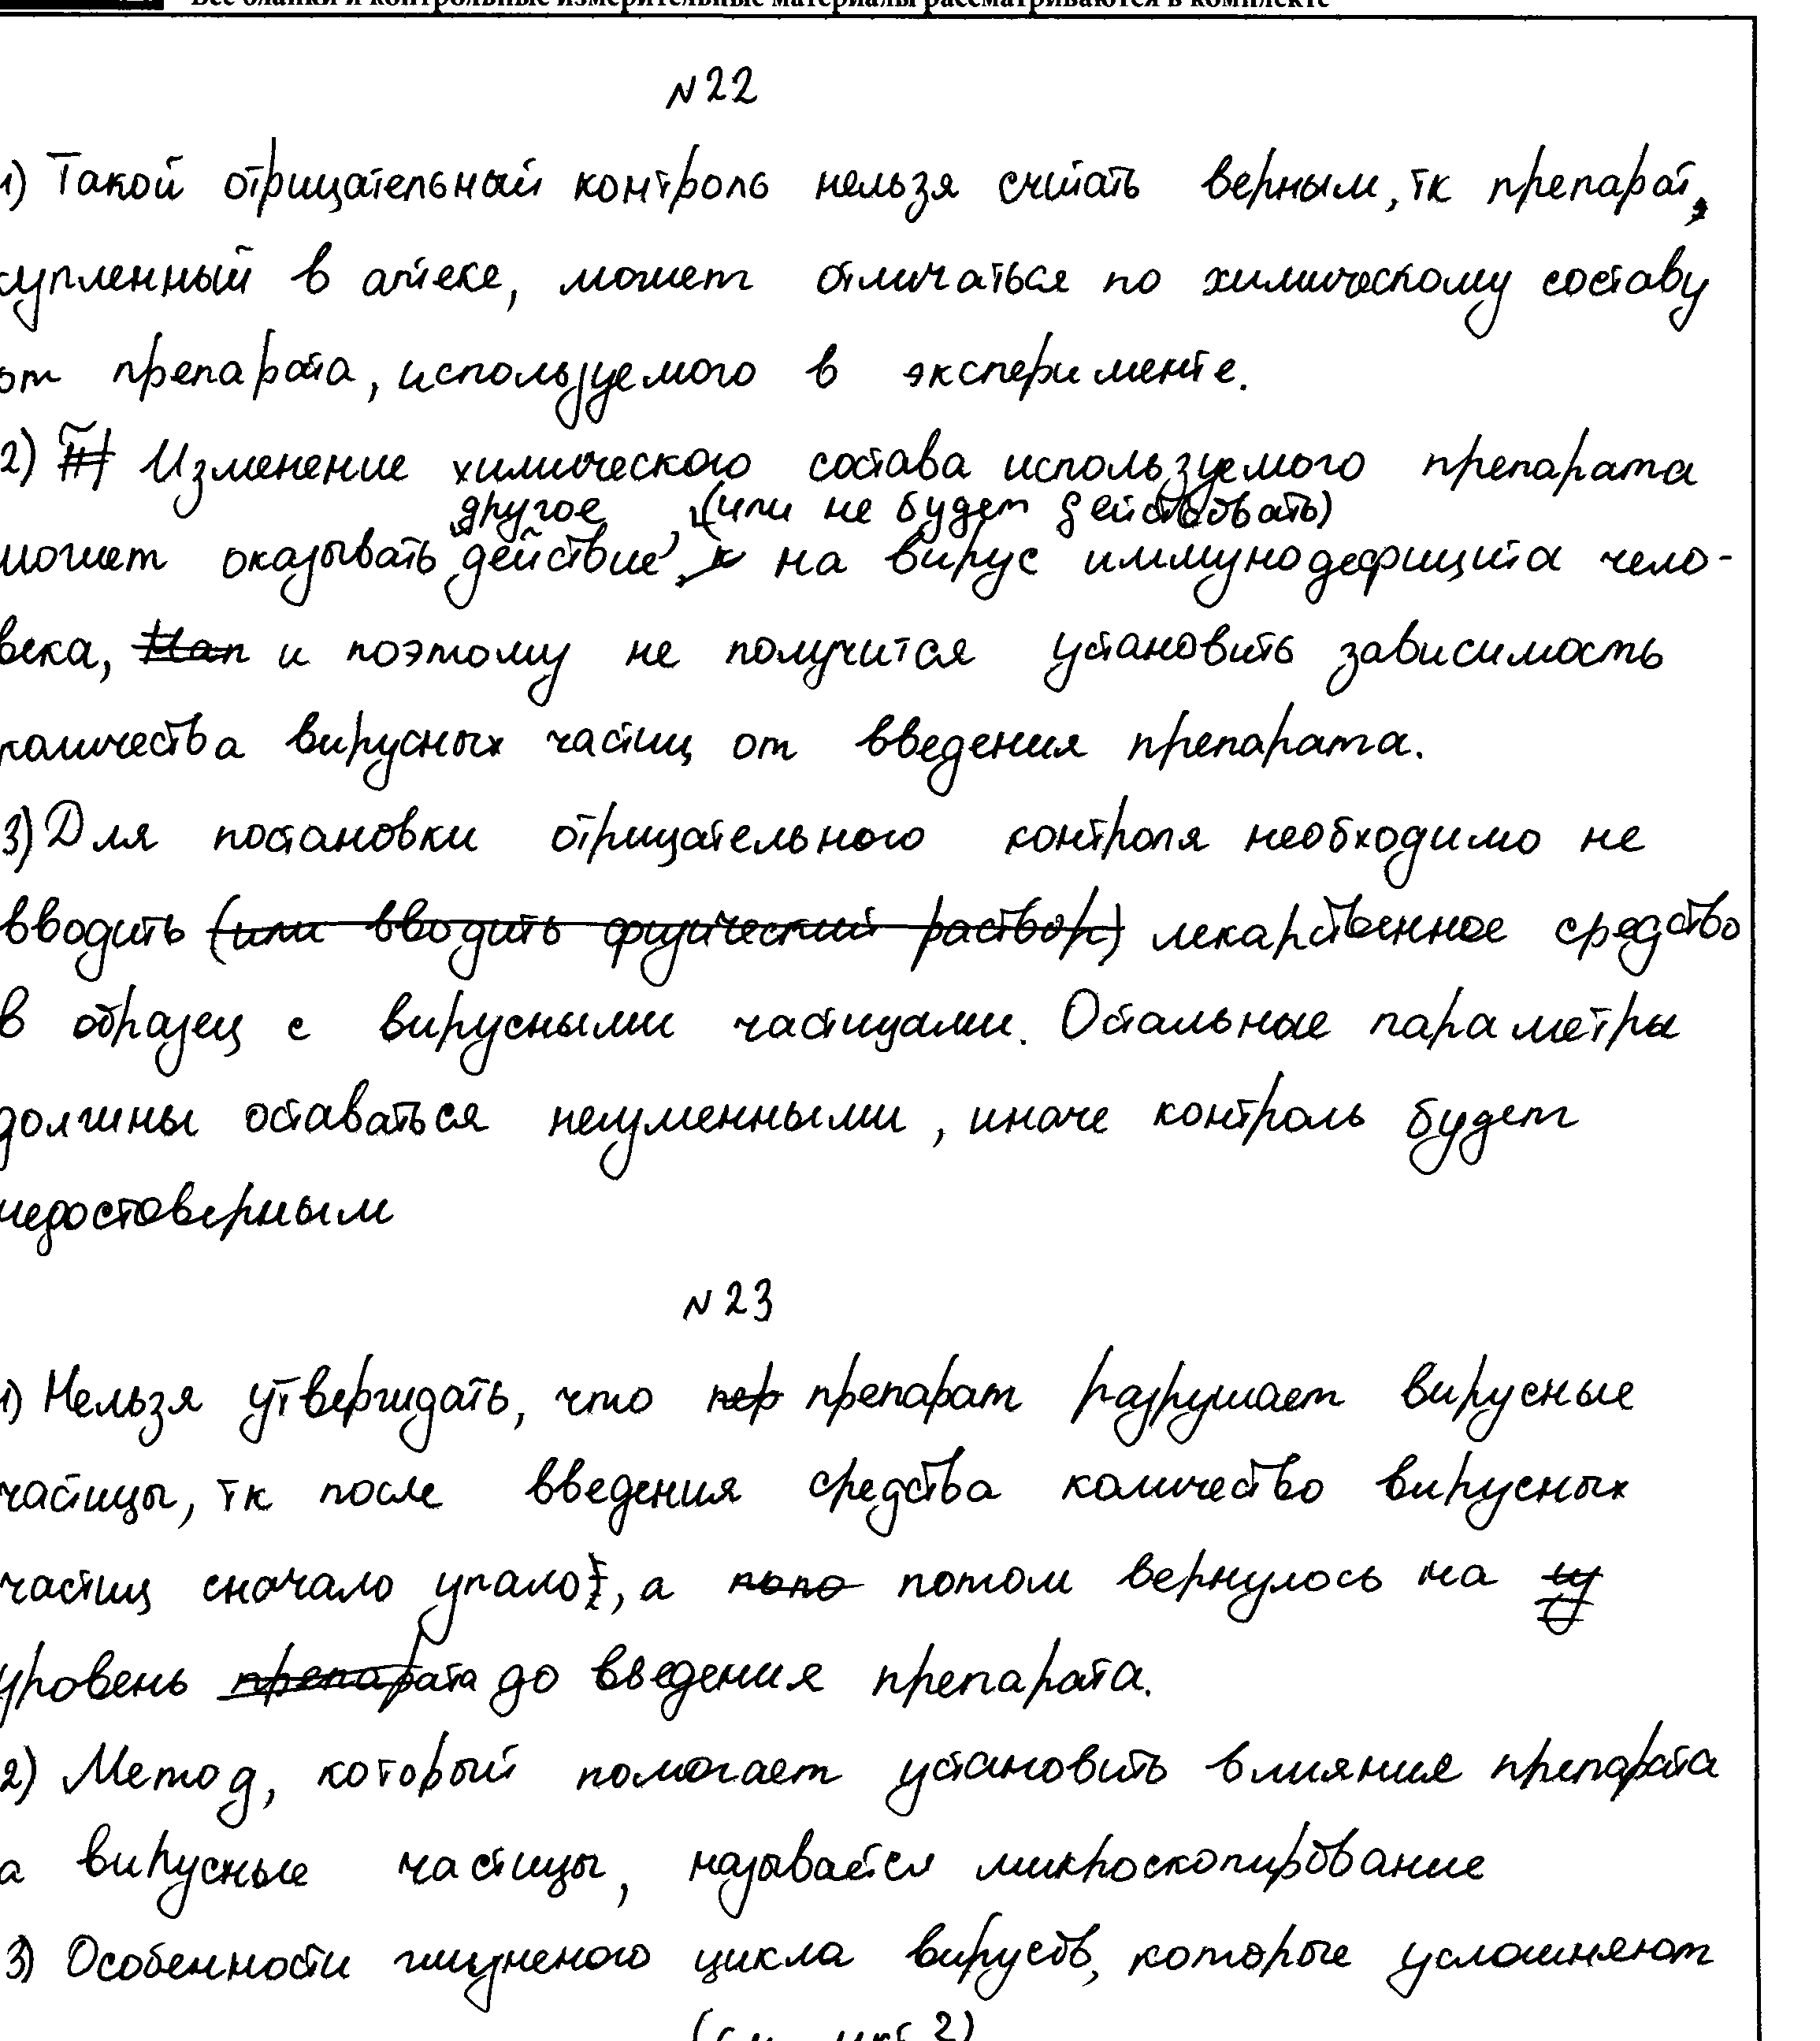 Все бланки и контрольные измерительные материалы рассматриваются в комплекте
№22
1) Такой отрицательный контроль нельзя считать верным, тк препарат,
купленный в аптеке, может отличаться по химическому составу
от препарата, используемого в эксперименте.
2) Изменение химического состава используемого препарата
другое (или не будет действовать)
может оказывать действие, на вирус иммунодефицита чело-
века, и поэтому не получится установить зависимость
количества вирусных частиц от введения препарата.
3) Для постановки отрицательного контроля необходимо не
вводить (или вводить физический раствор) лекарственное средство
в образец с вирусными частицами. Остальные параметры
должны оставаться неизменными, иначе контроль будет
недостоверным
№23
1) Нельзя утверждать, что пер препарат разрушает вирусные
частицы, тк после введения средства количество вирусных
частиц сначало упало, а попо потом вернулось на
уровень препарата до введения препарата.
2) Метод, который помогает установить влияние препарата
а вирусные частицы, называется микроскопирование
3) Особенности жизненого цикла вирусов, которые усложняют